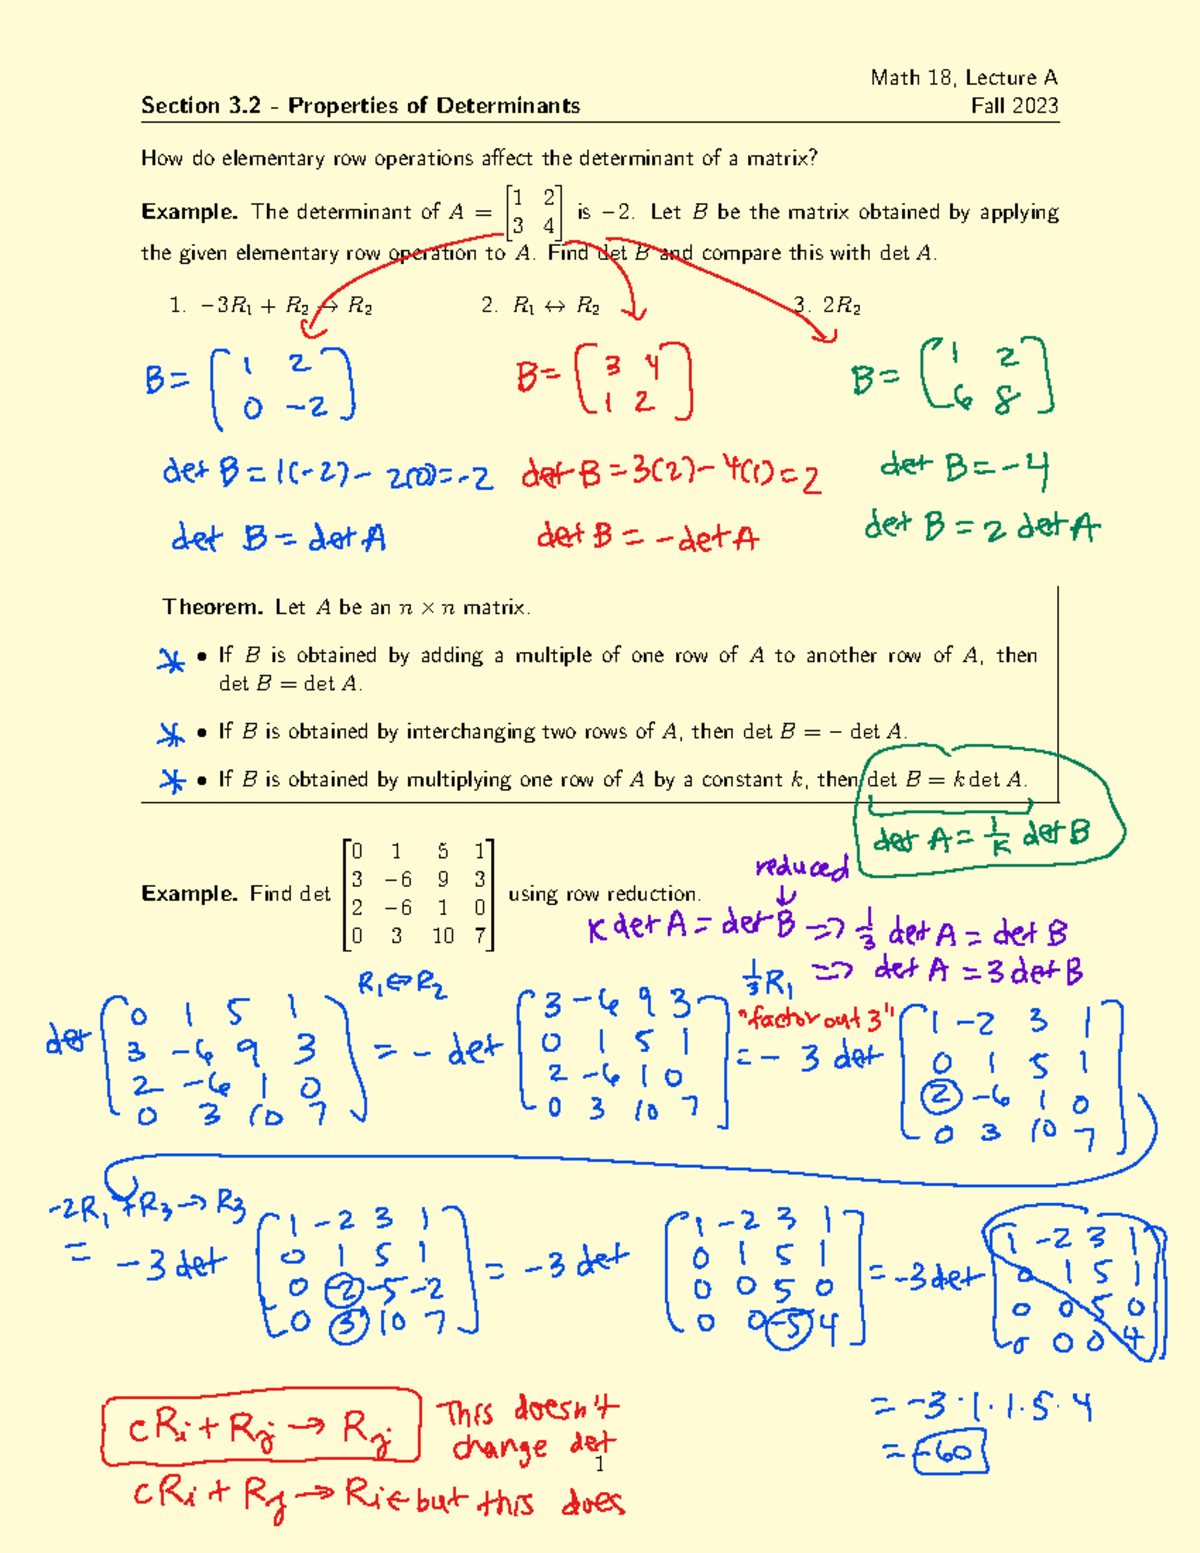 Math 18, Lecture A
Section 3.2 - Properties of Determinants Fall 2023
How do elementary row operations affect the determinant of a matrix?
Example. The determinant of A = [1 2; 3 4] is −2. Let B be the matrix obtained by applying
the given elementary row operation to A. Find det B and compare this with det A.
1. −3R₁ + R₂ → R₂ 2. R₁ ↔ R₂ 3. 2R₂
B = [1 2; 0 −2] B = [3 4; 1 2] B = [1 2; 6 8]
det B = 1(−2) − 2(0) = −2 det B = 3(2) − 4(1) = 2 det B = −4
det B = det A det B = −det A det B = 2 det A
Theorem. Let A be an n × n matrix.
* • If B is obtained by adding a multiple of one row of A to another row of A, then
det B = det A.
* • If B is obtained by interchanging two rows of A, then det B = − det A.
* • If B is obtained by multiplying one row of A by a constant k, then det B = k det A.
det A = 1/k det B
Example. Find det [0 1 5 1; 3 −6 9 3; 2 −6 1 0; 0 3 10 7] using row reduction.
reduced
k det A = det B ⇒ 1/3 det A = det B
⇒ det A = 3 det B
R₁ ↔ R₂ 1/3 R₁
"factor out 3"
det [0 1 5 1; 3 −6 9 3; 2 −6 1 0; 0 3 10 7] = − det [3 −6 9 3; 0 1 5 1; 2 −6 1 0; 0 3 10 7] = − 3 det [1 −2 3 1; 0 1 5 1; 2 −6 1 0; 0 3 10 7]
−2R₁ + R₃ → R₃
= −3 det [1 −2 3 1; 0 1 5 1; 0 −2 −5 −2; 0 3 10 7] = −3 det [1 −2 3 1; 0 1 5 1; 0 0 5 0; 0 0 −5 4] = −3 det [1 −2 3 1; 0 1 5 1; 0 0 5 0; 0 0 0 4]
= −3 · 1 · 1 · 5 · 4
= −60
cRᵢ + Rⱼ → Rⱼ This doesn't
change det
1
cRᵢ + Rⱼ → Rᵢ ← but this does